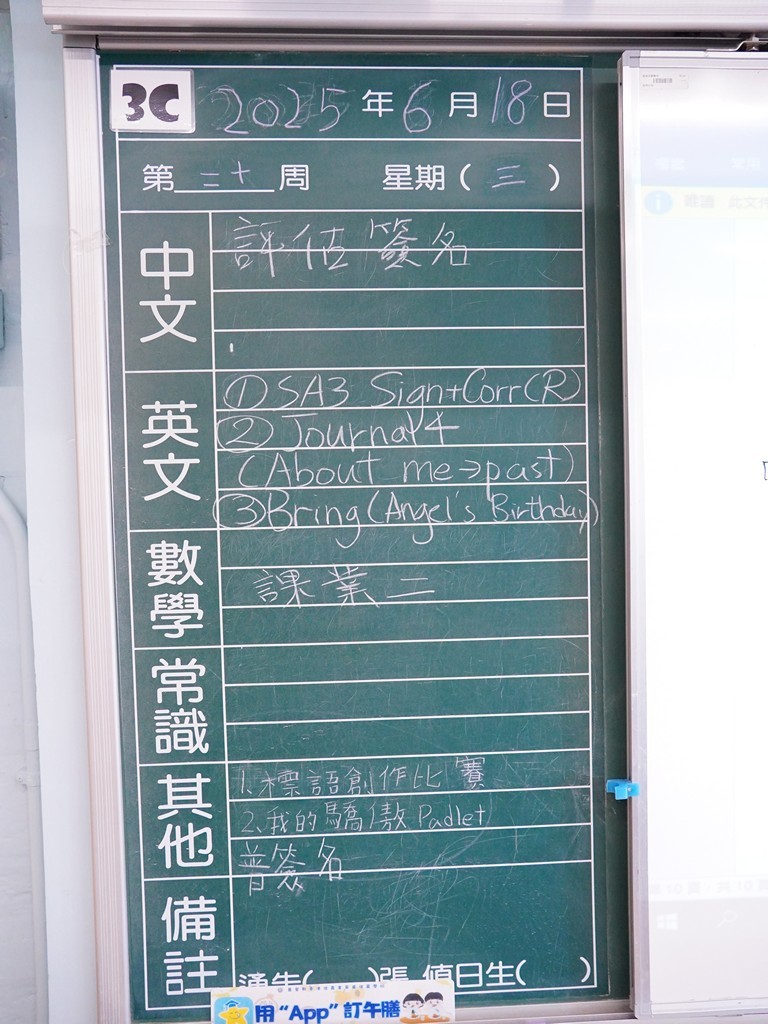 3C 2025年6月18日
第二十周 星期(三)
中文
評估簽名
英文
①SA3 Sign+Corr(R)
②Journal 4
(About me→past)
③Bring(Angel's Birthday)
數學
課業二
常識
其他
1.標語創作比賽
2.我的驕傲Padlet
普簽名
備註
通告( )張 值日生( )
用“App”訂午膳